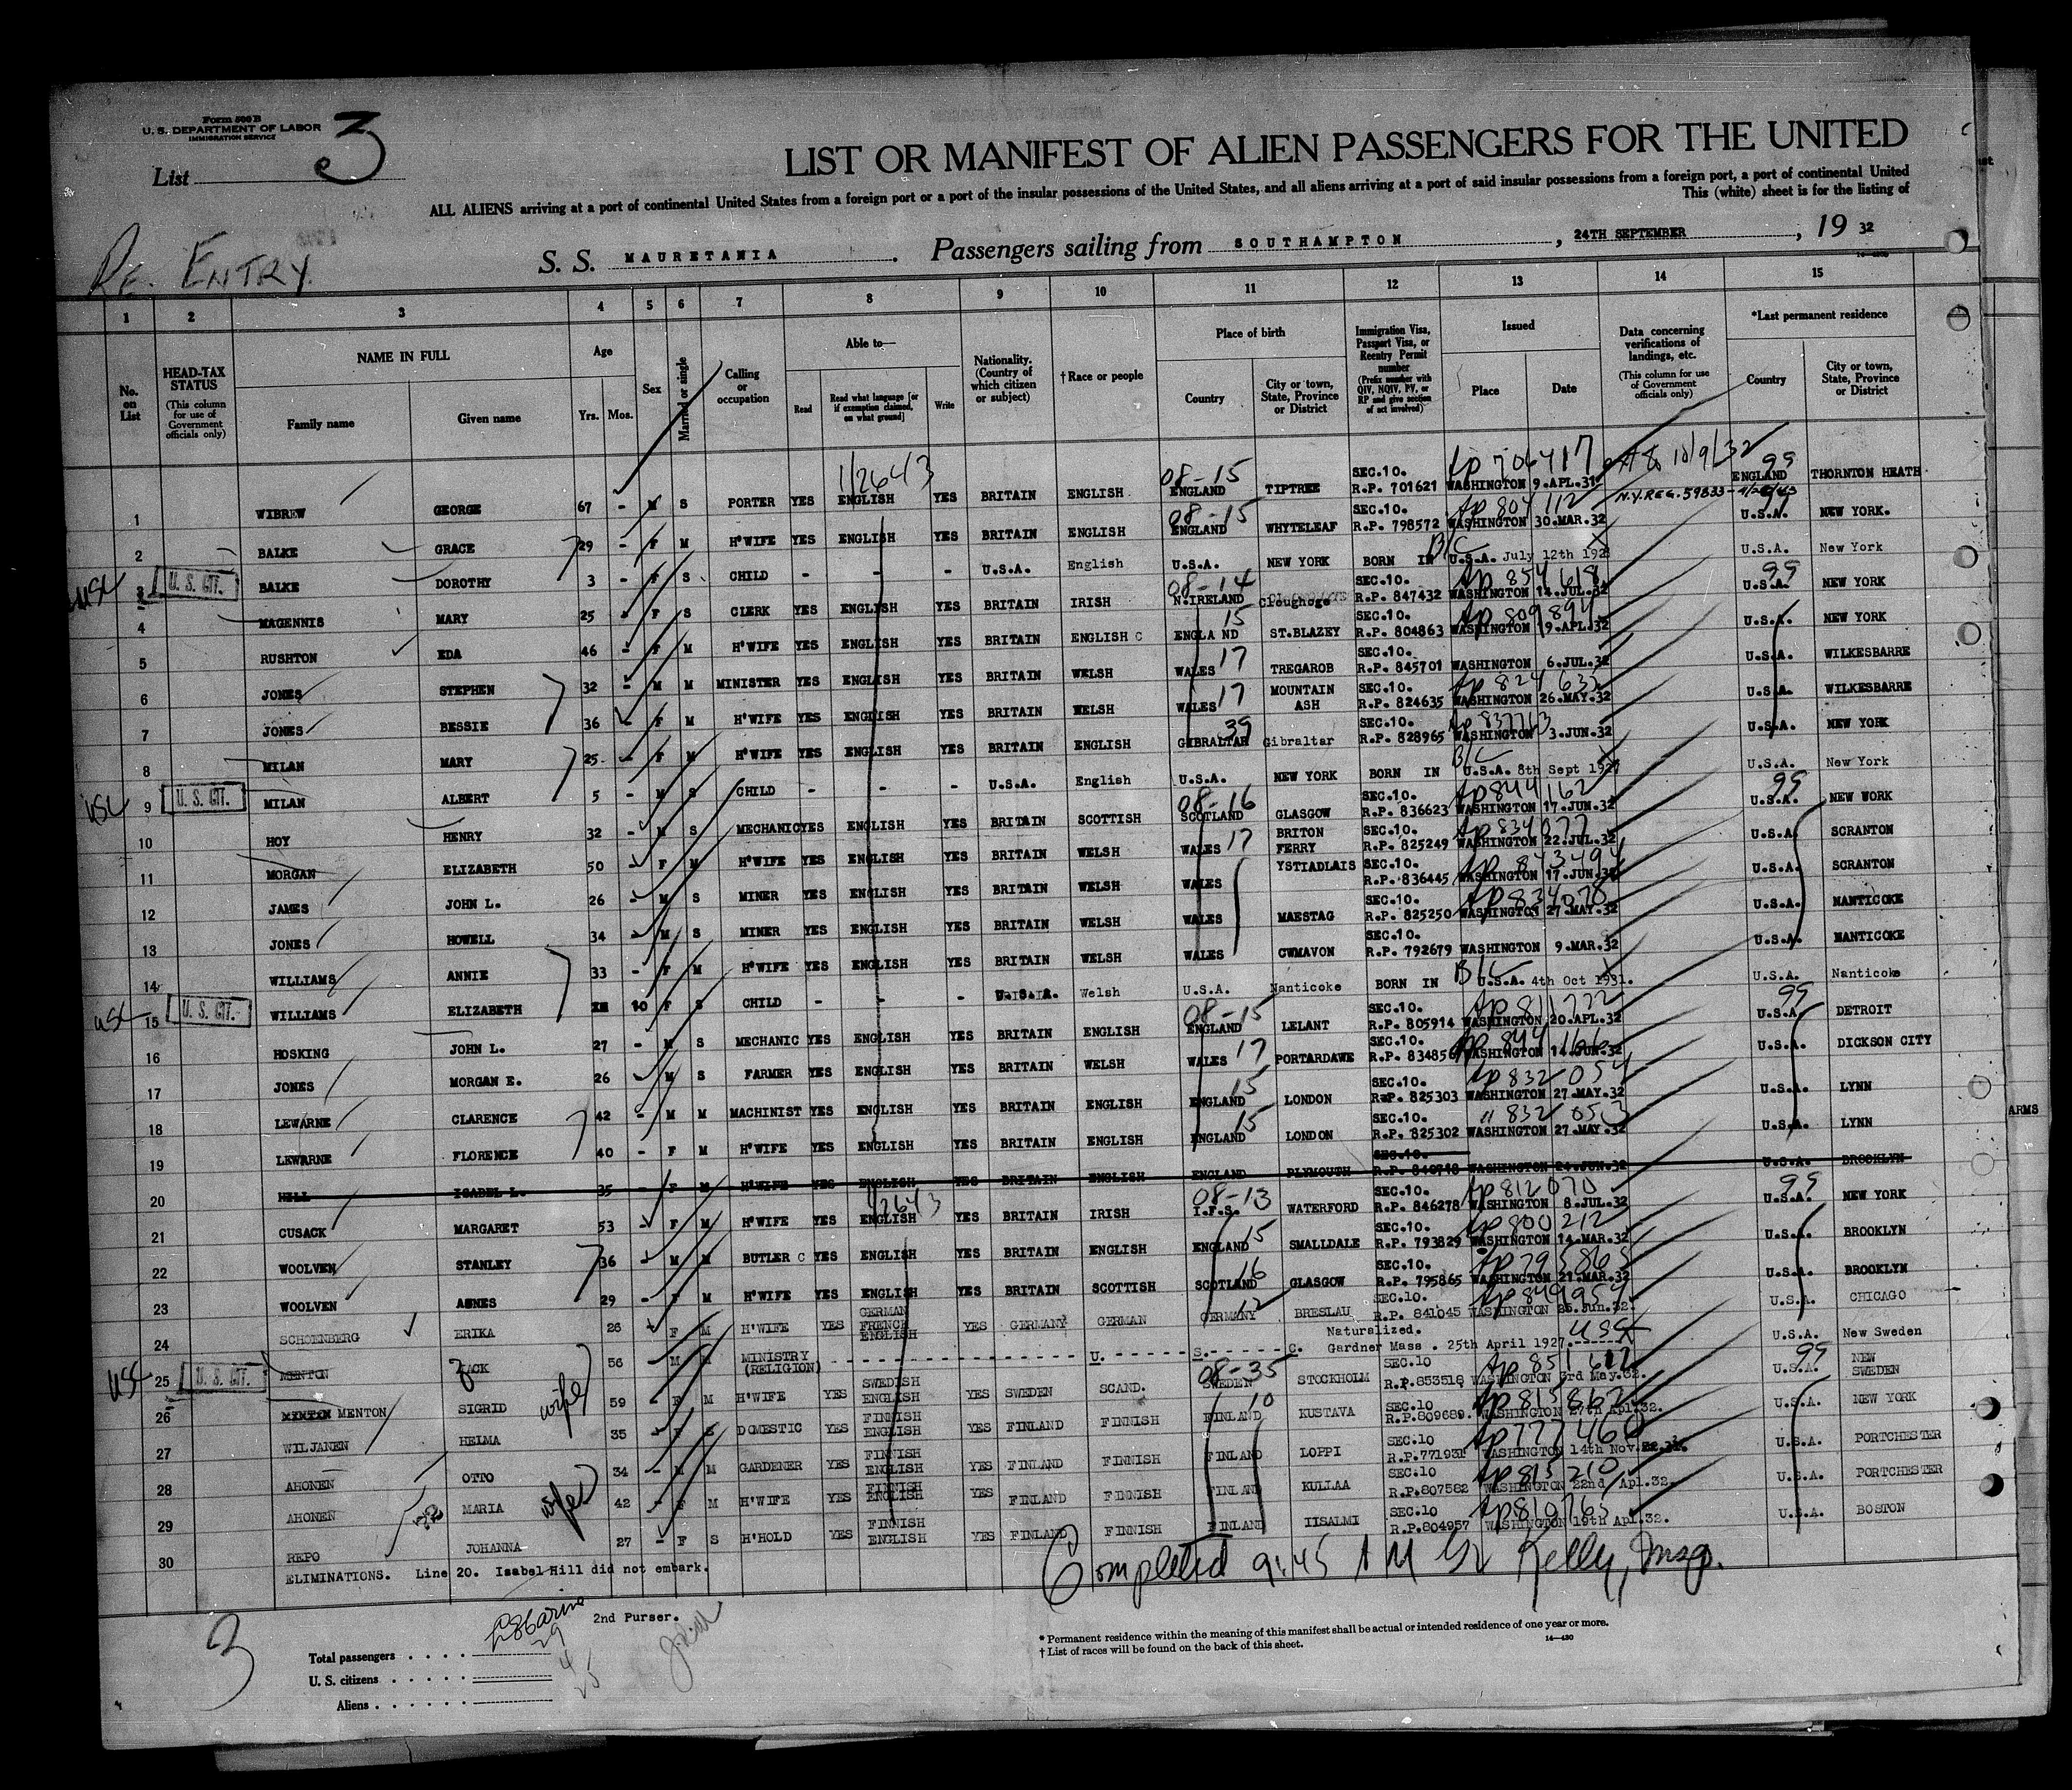 Form 500 B
U. S. DEPARTMENT OF LABOR
IMMIGRATION SERVICE
List 3
LIST OR MANIFEST OF ALIEN PASSENGERS FOR THE UNITED
ALL ALIENS arriving at a port of continental United States from a foreign port or a port of the insular possessions of the United States, and all aliens arriving at a port of said insular possessions from a foreign port, a port of continental United
This (white) sheet is for the listing of
RE. ENTRY.
S. S. MAURETANIA. Passengers sailing from SOUTHAMPTON, 24TH SEPTEMBER, 19 32
1 2 3 4 5 6 7 8 9 10 11 12 13 14 15
No. on List
HEAD-TAX STATUS (This column for use of Government officials only)
NAME IN FULL Family name Given name
Age Yrs. Mos.
Sex
Married or single
Calling or occupation
Able to— Read Read what language [or if exemption claimed, on what ground] Write
Nationality. (Country of which citizen or subject)
†Race or people
Place of birth Country City or town, State, Province or District
Immigration Visa, Passport Visa, or Reentry Permit number (Prefix number with QIV, NQIV, PV, or RP and give section of act involved)
Issued Place Date
Data concerning verifications of landings, etc. (This column for use of Government officials only)
*Last permanent residence Country City or town, State, Province or District
1 WIBREW GEORGE 67 - M S PORTER YES ENGLISH YES BRITAIN ENGLISH 08-15 ENGLAND TIPTREE SEC.10. R.P. 701621 WASHINGTON 9.APL.31 Ap 706417 10/9/32 99 ENGLAND THORNTON HEATH
2 BALKE GRACE 29 - F M H'WIFE YES ENGLISH YES BRITAIN ENGLISH 08-15 ENGLAND WHYTELEAF SEC.10. R.P. 798572 WASHINGTON 30.MAR.32 Ap 804112 N.Y.REG.59833 U.S.A. NEW YORK.
USC 3 U. S. CIT. BALKE DOROTHY 3 - F S CHILD - - - U.S.A. English U.S.A. NEW YORK BORN IN B/C U.S.A. July 12th U.S.A. New York
4 MAGENNIS MARY 25 - F S CLERK YES ENGLISH YES BRITAIN IRISH 08-14 N.IRELAND Cloughoge SEC.10. R.P. 847432 WASHINGTON 14.JUL.32 Ap 854618 99 U.S.A. NEW YORK
5 RUSHTON EDA 46 - F M H'WIFE YES ENGLISH YES BRITAIN ENGLISH C 15 ENGLAND ST.BLAZEY SEC.10. R.P. 804863 WASHINGTON 19.APL.32 Ap 809894 U.S.A. NEW YORK
6 JONES STEPHEN 32 - M M MINISTER YES ENGLISH YES BRITAIN WELSH WALES 17 TREGAROB SEC.10. R.P. 845701 WASHINGTON 6.JUL.32 U.S.A. WILKESBARRE
7 JONES BESSIE 36 - F M H'WIFE YES ENGLISH YES BRITAIN WELSH WALES 17 MOUNTAIN ASH SEC.10. R.P. 824635 WASHINGTON 26.MAY.32 U.S.A. WILKESBARRE
8 MILAN MARY 25 - F M H'WIFE YES ENGLISH YES BRITAIN ENGLISH 39 GIBRALTAR Gibraltar SEC.10. R.P. 828965 WASHINGTON 3.JUN.32 Ap 837713 U.S.A. NEW YORK
USC 9 U. S. CIT. MILAN ALBERT 5 - M S CHILD - - - U.S.A. English U.S.A. NEW YORK BORN IN B/C U.S.A. 8th Sept U.S.A. New York
10 HOY HENRY 32 - M S MECHANIC YES ENGLISH YES BRITAIN SCOTTISH 08-16 SCOTLAND GLASGOW SEC.10. R.P. 836623 WASHINGTON 17.JUN.32 Ap 844162 99 U.S.A. NEW WORK
11 MORGAN ELIZABETH 50 - F M H'WIFE YES ENGLISH YES BRITAIN WELSH WALES 17 BRITON FERRY SEC.10. R.P. 825249 WASHINGTON 22.JUL.32 Ap 834077 U.S.A. SCRANTON
12 JAMES JOHN L. 26 - M S MINER YES ENGLISH YES BRITAIN WELSH WALES YSTIADLAIS SEC.10. R.P. 836445 WASHINGTON 17.JUN.32 Ap 843494 U.S.A. SCRANTON
13 JONES HOWELL 34 - M S MINER YES ENGLISH YES BRITAIN WELSH WALES MAESTAG SEC.10. R.P. 825250 WASHINGTON 27.MAY.32 Ap 834078 U.S.A. NANTICOKE
14 WILLIAMS ANNIE 33 - F M H'WIFE YES ENGLISH YES BRITAIN WELSH WALES CWMAVON SEC.10. R.P. 792679 WASHINGTON 9.MAR.32 U.S.A. NANTICOKE
USC 15 U. S. CIT. WILLIAMS ELIZABETH 10 F S CHILD - - - U.S.A. Welsh U.S.A. Nanticoke BORN IN B/C U.S.A. 4th Oct 1931. U.S.A. Nanticoke
16 HOSKING JOHN L. 27 - M S MECHANIC YES ENGLISH YES BRITAIN ENGLISH 08-15 ENGLAND LELANT SEC.10. R.P. 805914 WASHINGTON 20.APL.32 Ap 811222 99 U.S.A. DETROIT
17 JONES MORGAN E. 26 - M S FARMER YES ENGLISH YES BRITAIN WELSH WALES 17 PORTARDAWE SEC.10. R.P. WASHINGTON 14.JUN.32 Ap 844166 U.S.A. DICKSON CITY
18 LEWARNE CLARENCE 42 - M M MACHINIST YES ENGLISH YES BRITAIN ENGLISH 15 ENGLAND LONDON SEC.10. R.P. 825303 WASHINGTON 27.MAY.32 Ap 832054 U.S.A. LYNN
19 LEWARNE FLORENCE 40 - F M H'WIFE YES ENGLISH YES BRITAIN ENGLISH 15 ENGLAND LONDON SEC.10. R.P. 825302 WASHINGTON 27.MAY.32 " 832053 U.S.A. LYNN
20 HILL ISABEL L. 35 - F M H'WIFE YES ENGLISH YES BRITAIN ENGLISH ENGLAND PLYMOUTH SEC.10. R.P. 840748 WASHINGTON 24.JUN.32 U.S.A. BROOKLYN
21 CUSACK MARGARET 53 - F M H'WIFE YES ENGLISH YES BRITAIN IRISH 08-13 I.F.S. WATERFORD SEC.10. R.P. 846278 WASHINGTON 8.JUL.32 Ap 812070 99 U.S.A. NEW YORK
22 WOOLVEN STANLEY 36 - M M BUTLER C YES ENGLISH YES BRITAIN ENGLISH 15 ENGLAND SMALLDALE SEC.10. R.P. 793829 WASHINGTON 14.MAR.32 Ap 800212 U.S.A. BROOKLYN
23 WOOLVEN AGNES 29 - F M H'WIFE YES ENGLISH YES BRITAIN SCOTTISH 16 SCOTLAND GLASGOW SEC.10. R.P. 795865 WASHINGTON 21.MAR.32 Ap 795865 U.S.A. BROOKLYN
24 SCHOENBERG ERIKA 26 - F M H'WIFE YES GERMAN FRENCH ENGLISH YES GERMANY GERMAN 12 GERMANY BRESLAU SEC.10. R.P. 841045 WASHINGTON Jun.32. Ap 849954 U.S.A. CHICAGO
USC 25 U. S. CIT. MENTON JACK 56 - M M MINISTRY (RELIGION) U. S. C. Naturalized. Gardner Mass. 25th April 1927. U.S.A. New Sweden
26 MENTON SIGRID wife 59 - F M H'WIFE YES SWEDISH ENGLISH YES SWEDEN SCAND. 08-35 SWEDEN STOCKHOLM SEC.10 R.P.853518 WASHINGTON 3rd May.32. 99 U.S.A. NEW SWEDEN
27 WILJANEN HELMA 35 - F S DOMESTIC YES FINNISH ENGLISH YES FINLAND FINNISH 10 FINLAND KUSTAVA SEC.10 R.P.809689. WASHINGTON 27th Apl.32. Ap 815862 U.S.A. NEW YORK
28 AHONEN OTTO 34 - M M GARDENER YES FINNISH ENGLISH YES FINLAND FINNISH FINLAND LOPPI SEC.10 R.P.771931 WASHINGTON 14th Nov. Ap 777460 U.S.A. PORTCHESTER
29 AHONEN MARIA wife 42 - F M H'WIFE YES FINNISH ENGLISH YES FINLAND FINNISH FINLAND KULLAA SEC.10 R.P.807582 WASHINGTON 22nd Apl.32. Ap 815210 U.S.A. PORTCHESTER
30 REPO JOHANNA 27 - F S H'HOLD YES FINNISH ENGLISH YES FINLAND FINNISH FINLAND IISALMI SEC.10 R.P.804957 WASHINGTON 19th Apl.32. Ap 810765 U.S.A. BOSTON
ELIMINATIONS. Line 20. Isabel Hill did not embark.
Completed 9:45 AM Kelly, Insp.
3
2nd Purser.
Total passengers 29
U. S. citizens 4
Aliens 25
* Permanent residence within the meaning of this manifest shall be actual or intended residence of one year or more.
† List of races will be found on the back of this sheet.
14—430
ARMS